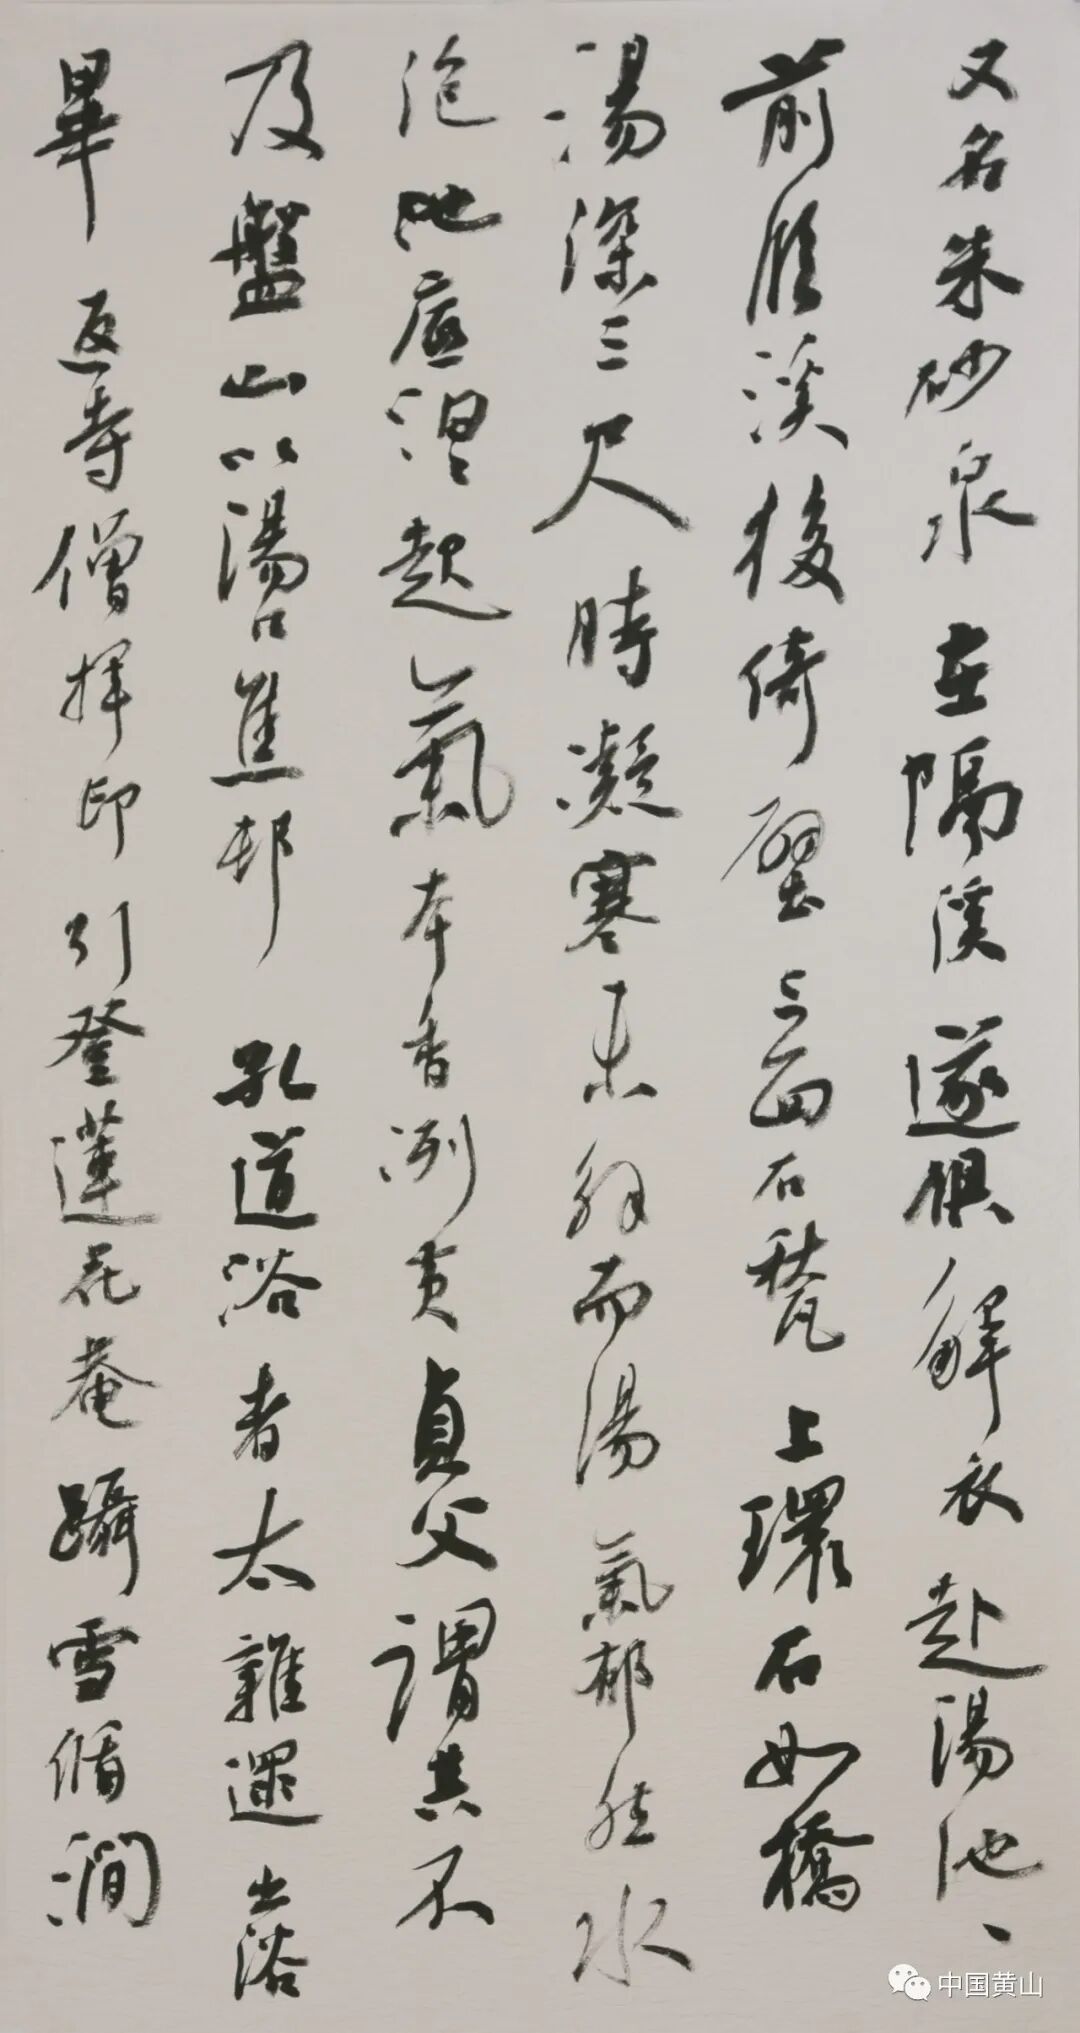 又名朱砂泉在隔溪遂俱解衣赴湯池、
前臨溪後倚壁三面石甃上環石如橋
湯深三尺時凝寒未解而湯氣郁然水
泡池底汩々起氣本香冽黄貞父謂其不
及盤山以湯口焦邨孔道浴者太雜遝也浴
畢返寺僧揮印引登蓮花菴躡雪循澗
中国黄山